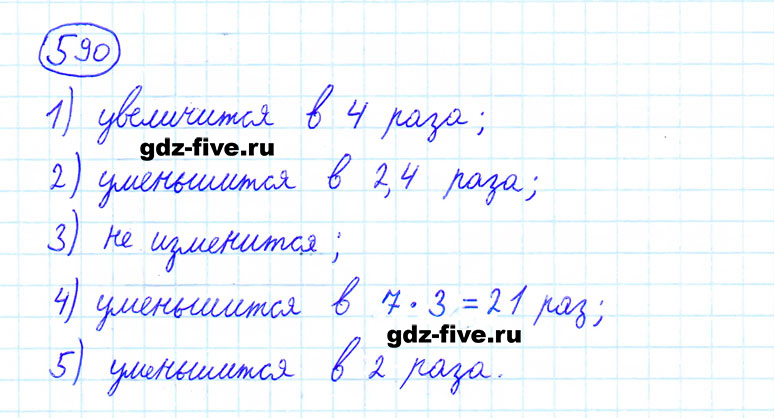 590
1) увеличится в 4 раза;
gdz-five.ru
2) уменьшится в 2,4 раза;
3) не изменится;
4) уменьшится в 7 · 3 = 21 раз;
gdz-five.ru
5) уменьшится в 2 раза.